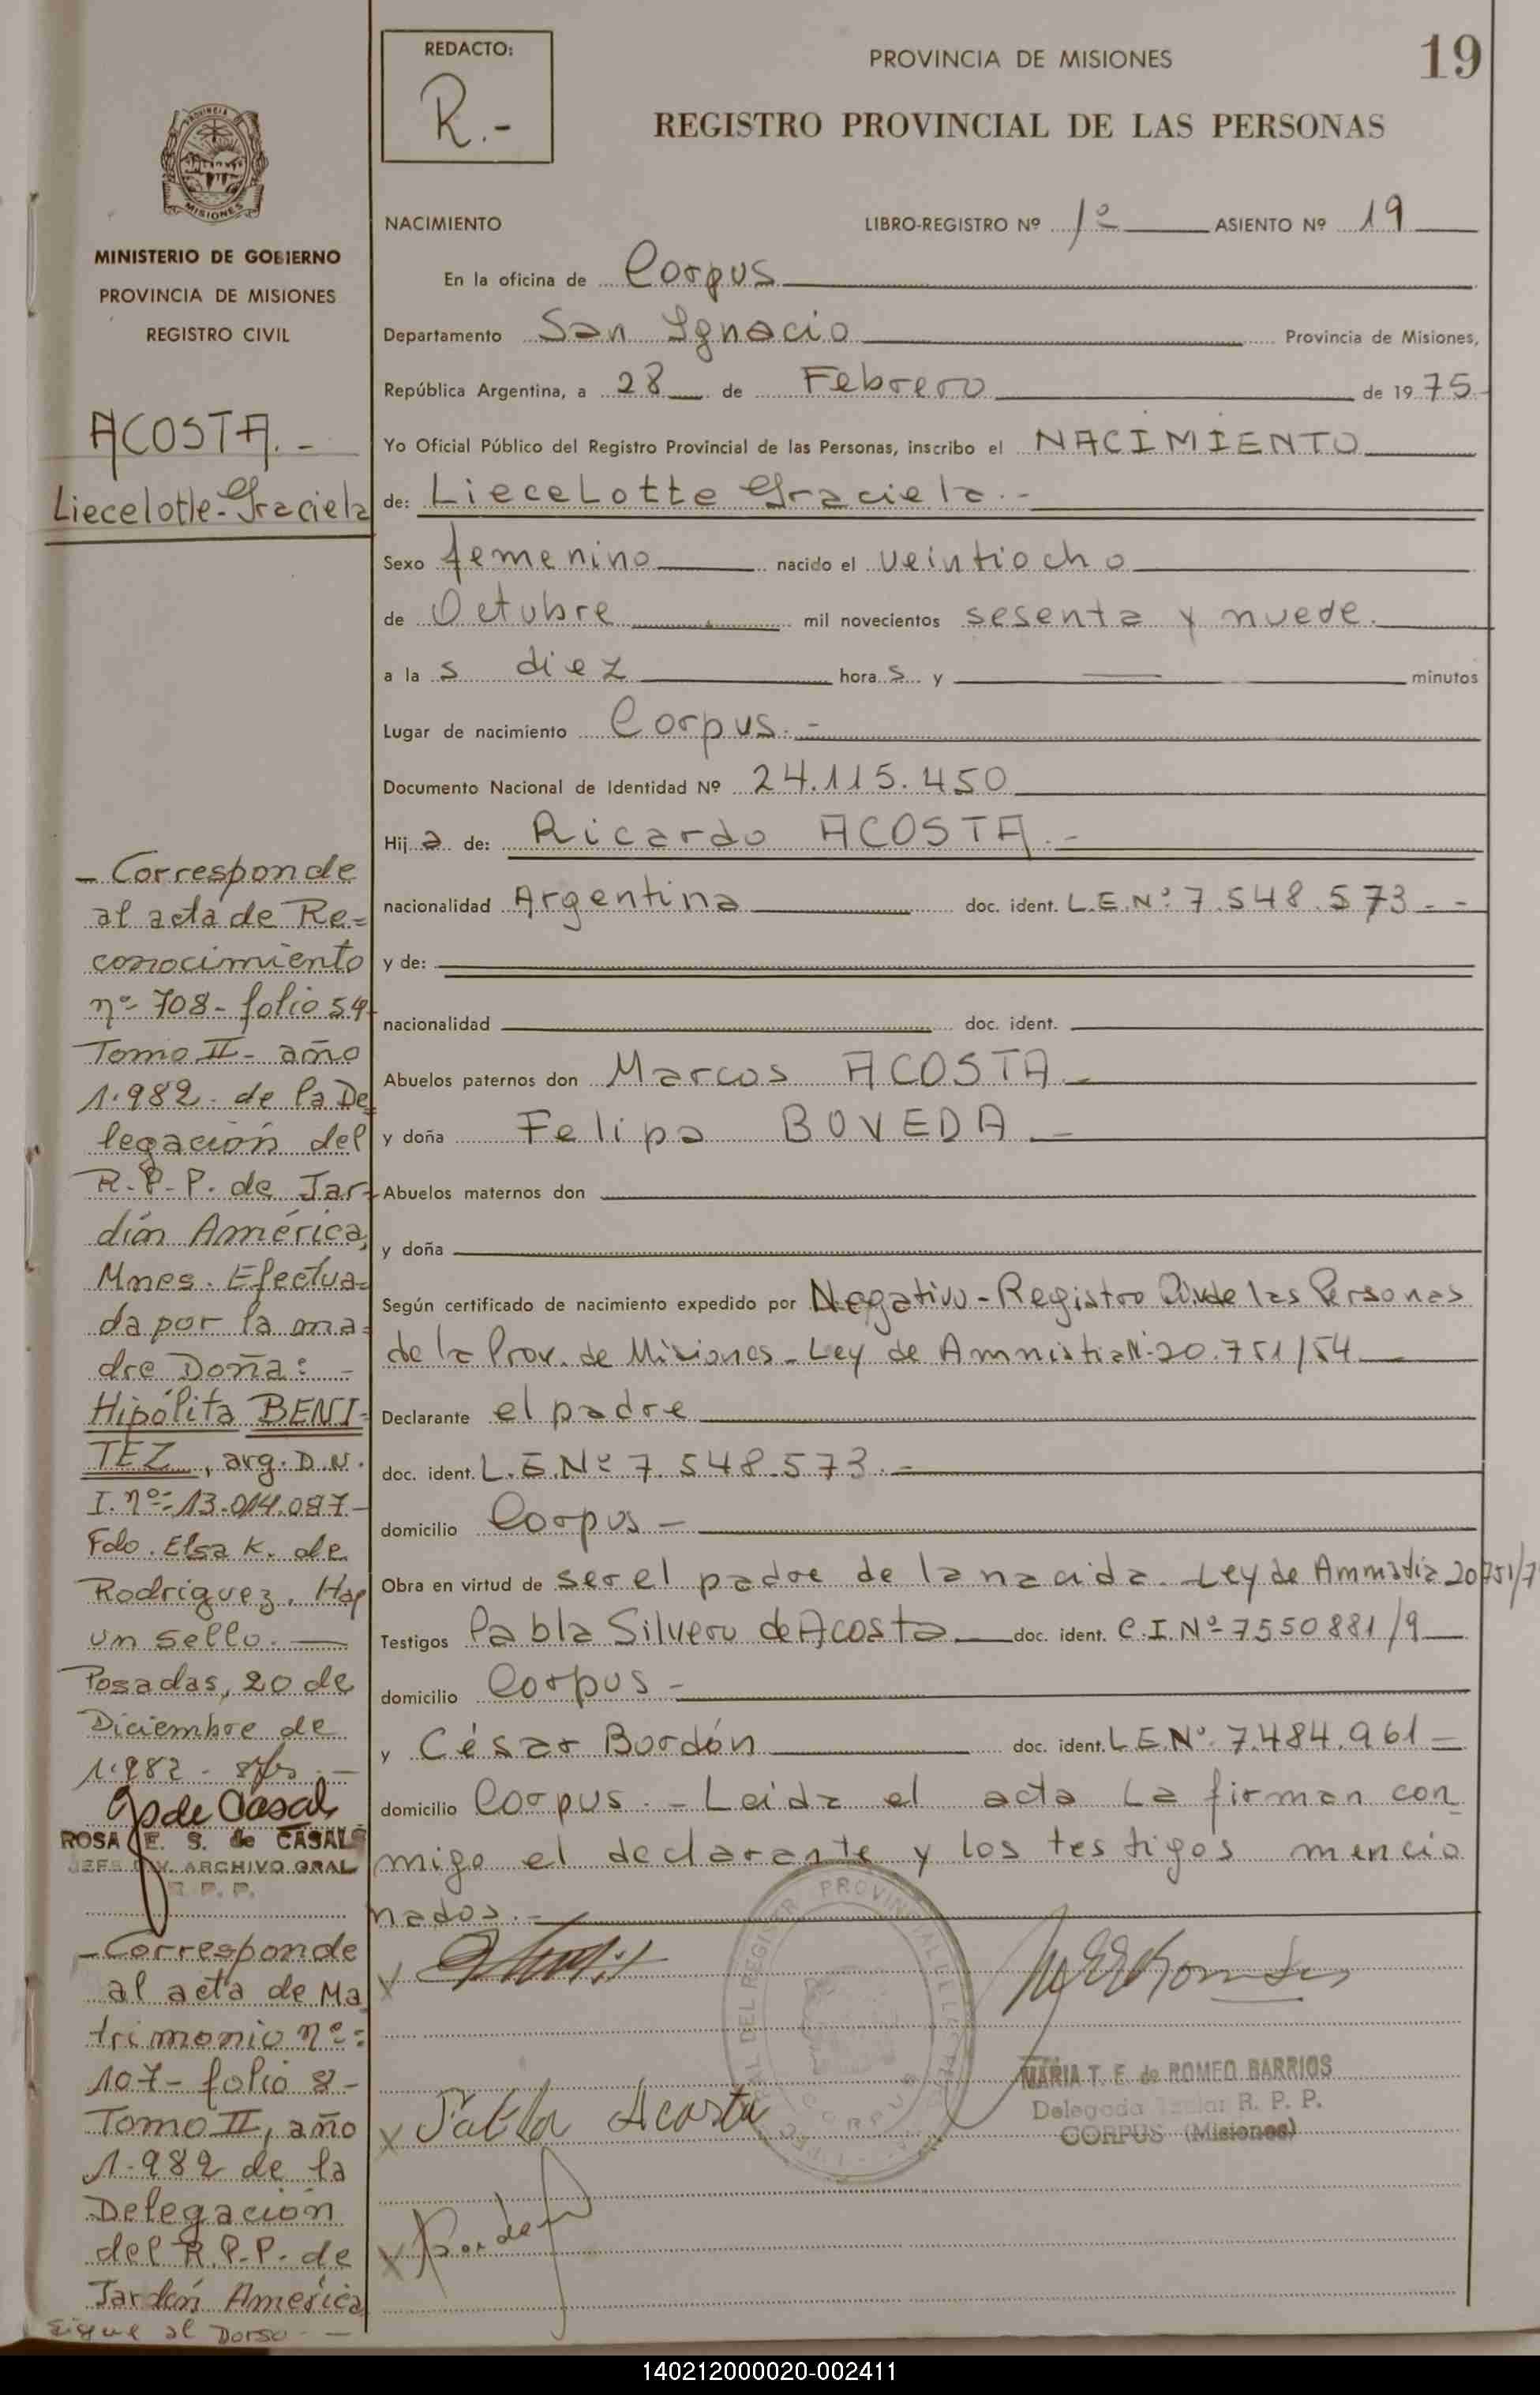 REDACTO:
R.-
PROVINCIA DE MISIONES
19
REGISTRO PROVINCIAL DE LAS PERSONAS
MISIONES
MINISTERIO DE GOBIERNO
PROVINCIA DE MISIONES
REGISTRO CIVIL
ACOSTA.-
Liecelotte-Graciela
NACIMIENTO LIBRO-REGISTRO Nº 1º ASIENTO Nº 19
En la oficina de Corpus
Departamento San Ignacio Provincia de Misiones,
República Argentina, a 28 de Febrero de 1975.-
Yo Oficial Público del Registro Provincial de las Personas, inscribo el NACIMIENTO
de: Liecelotte Graciela.-
Sexo femenino nacido el veintiocho
de Octubre mil novecientos sesenta y nuede.
a la s diez hora s y — minutos
Lugar de nacimiento Corpus.-
Documento Nacional de Identidad Nº 24.115.450
Hij a de: Ricardo ACOSTA.-
nacionalidad Argentina doc. ident. L.E.Nº 7.548.573.--
y de:
nacionalidad doc. ident.
Abuelos paternos don Marcos ACOSTA.-
y doña Felipa BOVEDA-
Abuelos maternos don
y doña
Según certificado de nacimiento expedido por Negativo-Registro de las Personas
de la Prov. de Misiones-Ley de Amnistia Nº 20.751/54
Declarante el padre
doc. ident. L.E.Nº 7.548.573.-
domicilio Corpus-
Obra en virtud de ser el padre de la nacida.-Ley de Amnistia 20751/7
Testigos Pabla Silvero de Acosta doc. ident. C.I.Nº 7550881/9
domicilio Corpus-
y César Bordón doc. ident. L.E.Nº 7.484.961-
domicilio Corpus.-Leida el acta La firman con
migo el declarante y los testigos mencio
nados.-
X
X Pabla Acosta
X
MARIA T. F. de ROMEO BARRIOS
Delegada R. P. P.
CORPUS (Misiones)
- Corresponde
al acta de Re=
conocimiento
nº 708- folio 54-
Tomo II- año
1.982- de la De
legación del
R.P.P. de Jar-
dín América,
Mnes. Efectua=
da por la ma=
dre Doña:-
Hipólita BENI-
TEZ, arg. D.N.
I. nº:-13.014.087-
Fdo. Elsa K. de
Rodriguez. Hay
un sello.
Posadas, 20 de
Diciembre de
1.982-
ROSA E. S. de CASALS
JEFE DIV. ARCHIVO GRAL
R. P. P.
-Corresponde
al acta de Ma
trimonio nº=
107- folio 8-
Tomo II, año
1.982 de la
Delegación
del R.P.P. de
Jardín América
Sigue al Dorso-
140212000020-002411